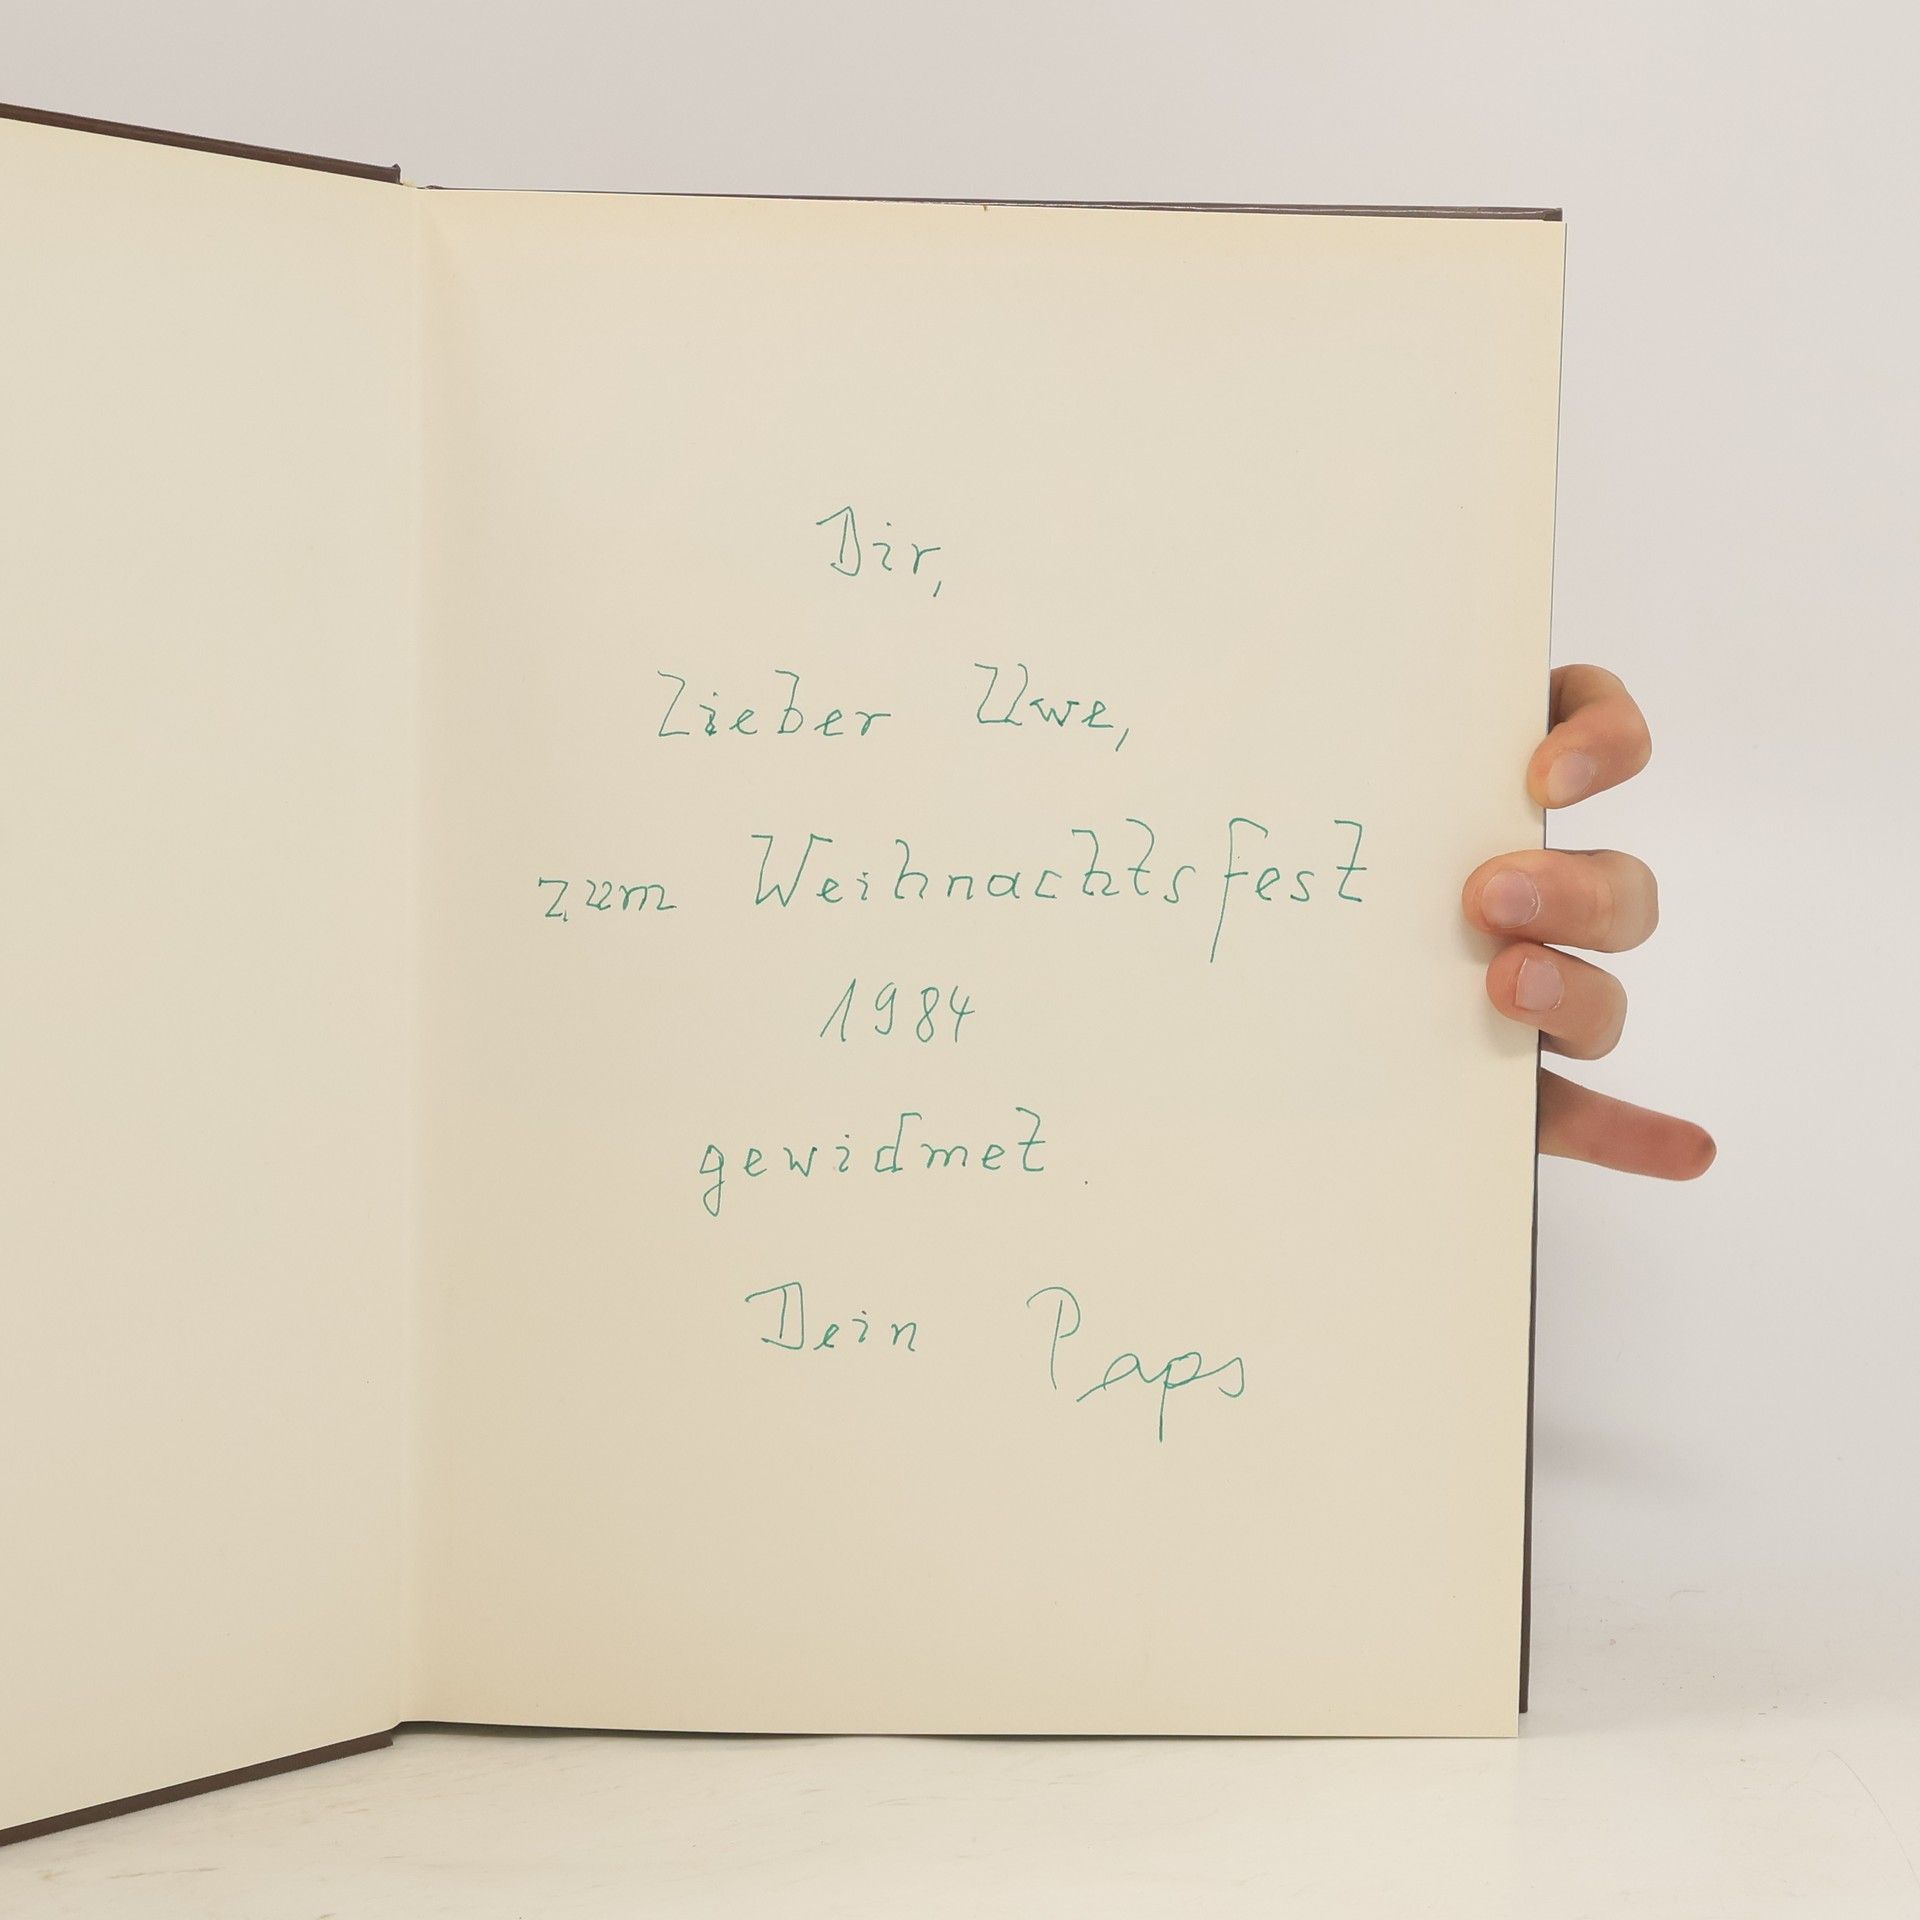 Dir,
Lieber Uwe,
zum Weihnachtsfest
1984
gewidmet.
Dein Paps